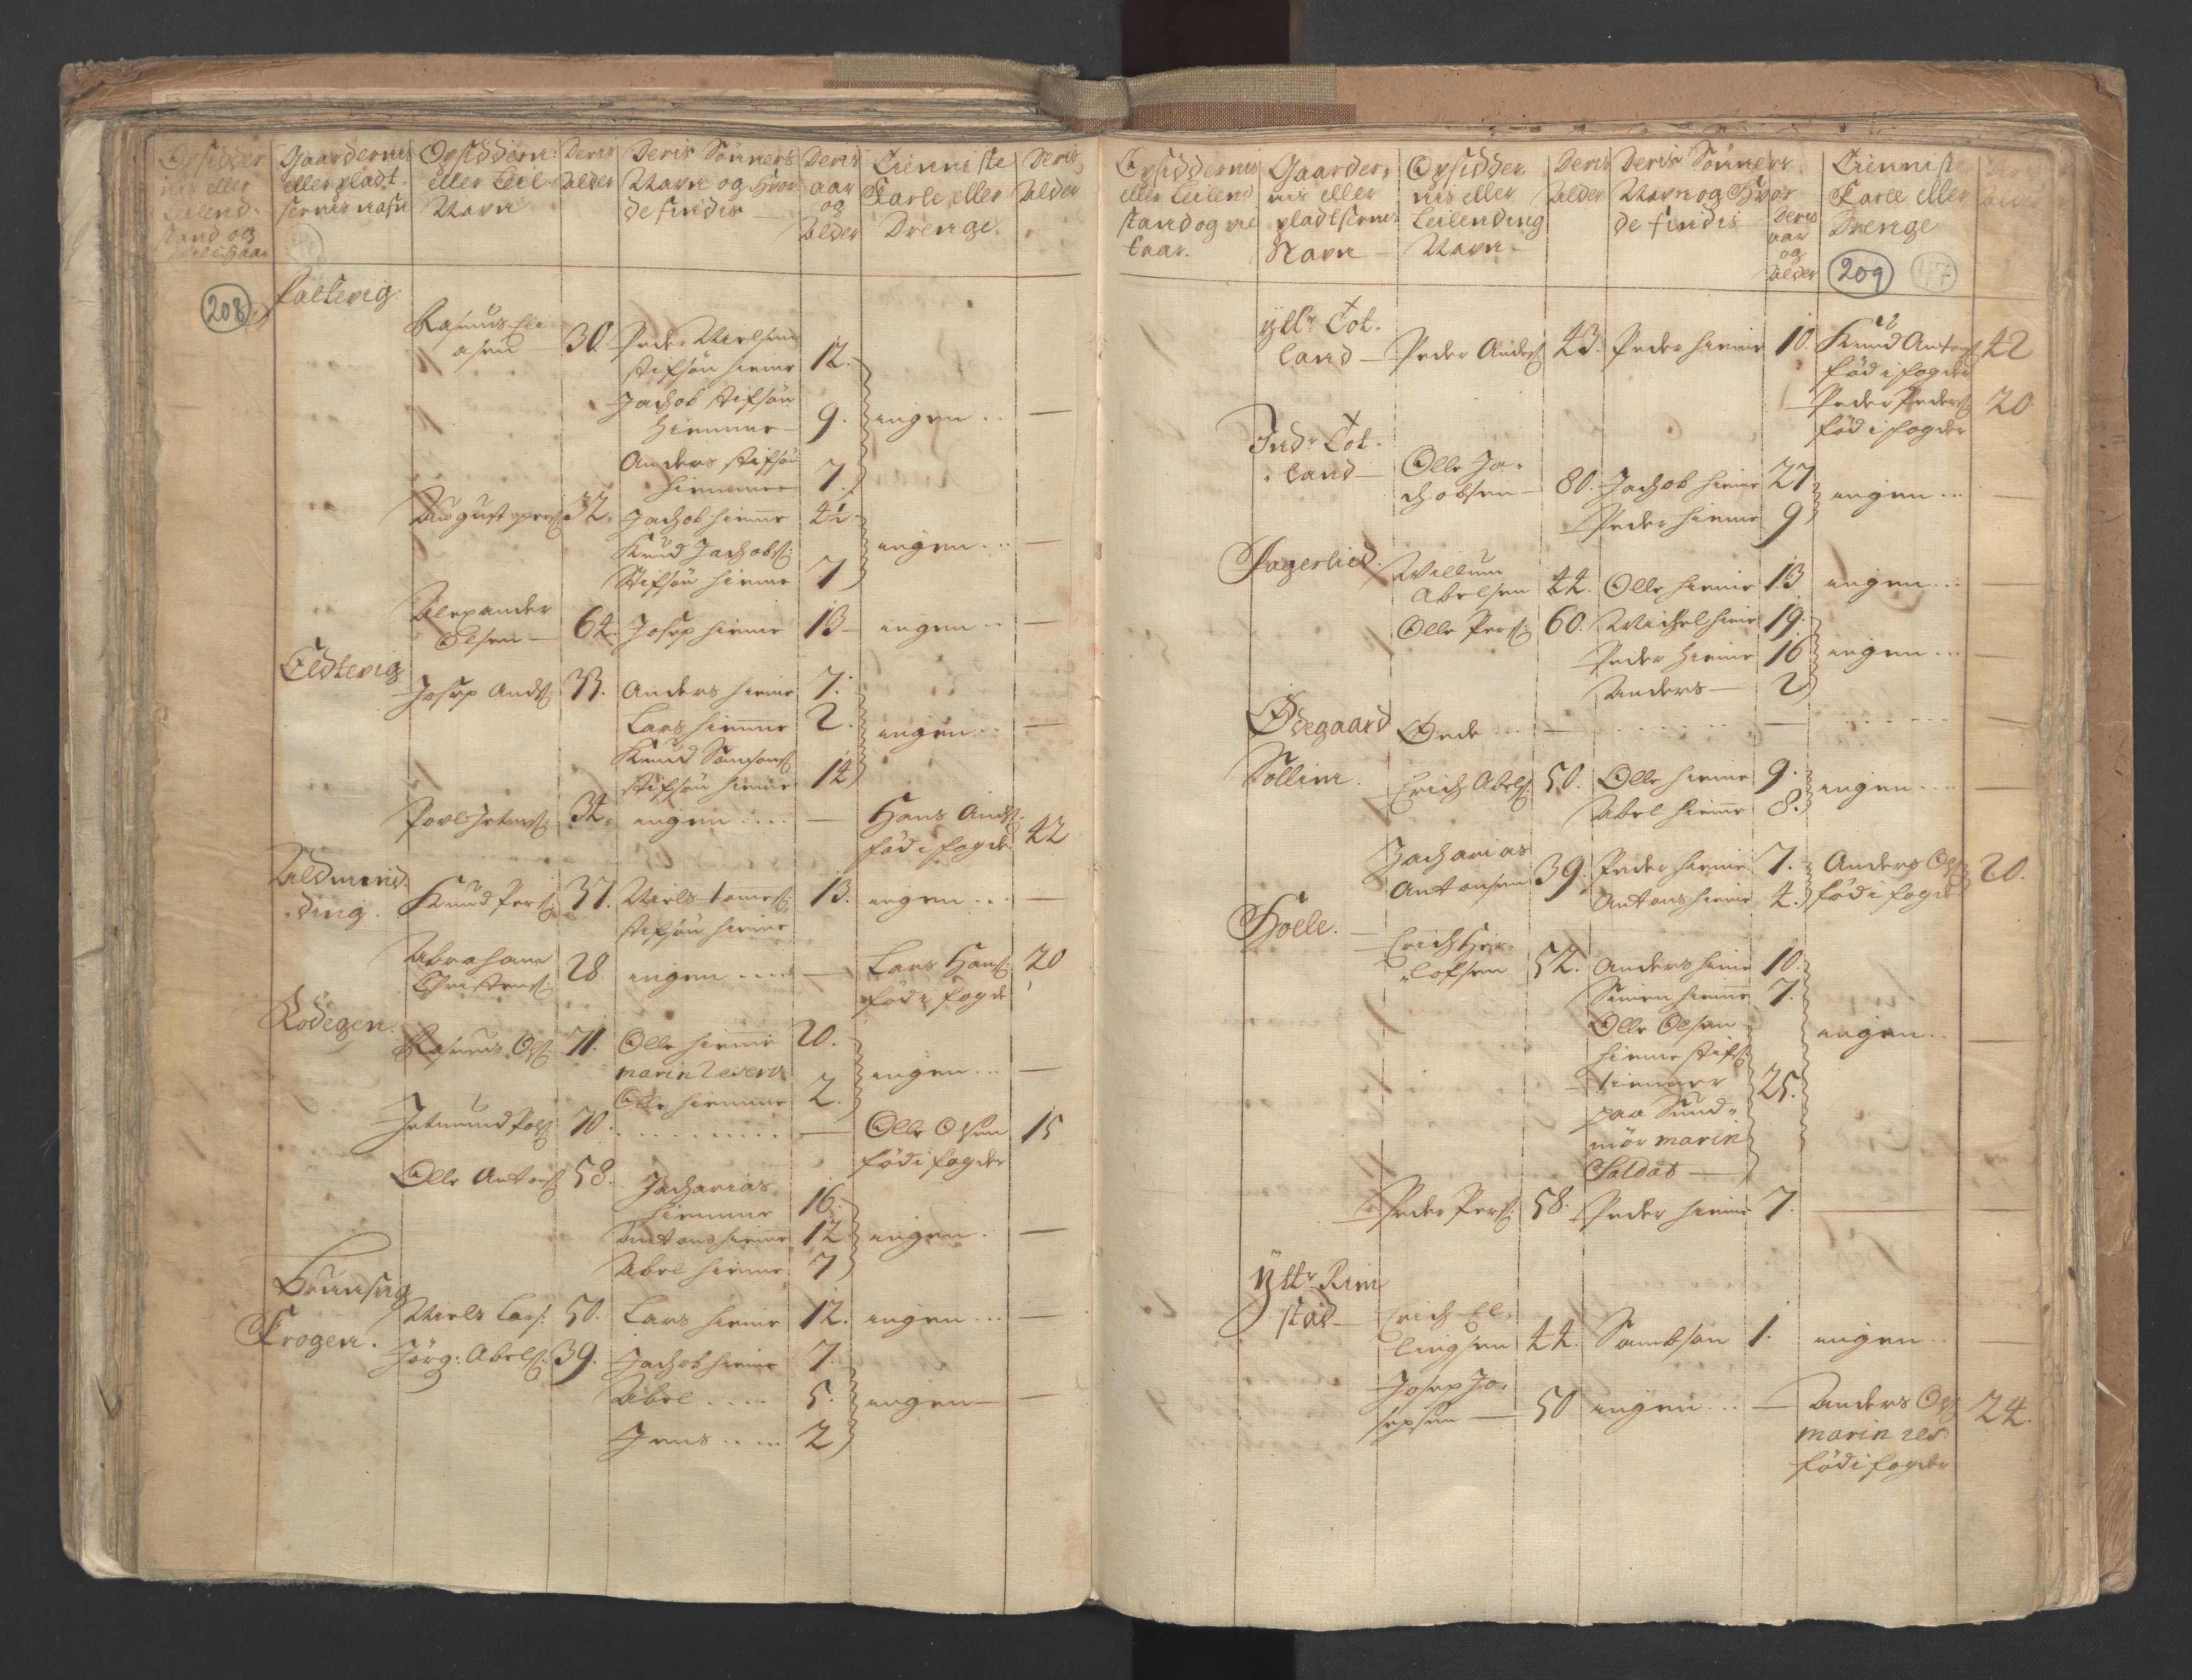 Opsidder
nis eller
Leilend.
stand og
Gaardernis
eller pladt
sernis nafn
Opsiddern:
eller Leil-
Navn
Deris
alder
Deris Sönners
Navn og hvor
de findis
Deris
aar
og
alder
Tienniste
Karle eller
Drenge.
Deris
alder
208
Paltevig:
Rasmus Eli
asen 30. Peder Nielsen
stifsön hieme 12.
Jachob stifsön
hiemme 9. ingen .. —
Anders stifsön
hiemme 7.
August pers: 32. Jachob hieme 4½
Knud Jachobs: ingen ... —
Stifsön hieme 7
Alexander
Olsen — 64. Josep hieme 13 — ingen .. —
Eldtevig
Josep Ands: 33. Anders hieme 7.
Lars hiemme 2. ingen .. —
Knud Samsons:
stifsön hieme 14
Povl Jetmds: 34. ingen .... — Hans Ands: 42
föd i fogder
Aldmend.
ding. Knud Pers: 37. Niels tomes: 13. ingen ... —
stifsön hieme
Abraham
Christens: 28. ingen .... — Lars Hans: 20
föd i fogd
Rodegen.
Rasmus Ols: 71. Olle hieme 20.
marin reserv ingen ... —
Olle hiemme 2.
Jetmund Pols: 70. .......... — Olle Olsen 15
föd i fogder
Olle Antons: 58. Zacharias
hiemme 16.
Antons hieme 12. ingen . —
Abel hieme 7
Brunsvig
Niels Lars: 50. Lars hieme 12. ingen ... —
Krogen. Jörg: Abels: 39. Jachob hieme 7.
Abel .... 5. ingen — —
Jens .... 2
Opsiddernis
eller Leilend
stand og vel
kaar.
Gaarder,
nis eller
pladtsernis
Navn
Opsidder
nis eller
Leilending
Navn
Deris
alder
Deris Sönners
Navn og hvor
de findis
Deris
aar
og
alder
Tienniste
Karle eller
Drenge
209 47
ÿttr Tot.
land — Peder Anders: 43. Peder hieme 10. Knud Antons: 42
föd i fogder
Peder Peders: 20.
föd i fogder
Indr Tot.
land — Olle Ja-
chobsen — 80. Jachob hieme 27 ingen ... —
Peder hieme 9
Fagerlied. Willum
Abelsen 44. Olle hieme 13 ingen ... —
Olle Pers: 60. Michel hieme 19.
Peder hieme 16 ingen ... —
Anders — 2
Ødegaard Øede ... — ........ — ........ —
Sollim. Erich Abels: 50. Olle hieme 9. ingen ... —
Abel hieme 8.
Zacharias
Antonsen 39. Peder hieme 7. Anders Ols: 20.
Antons hieme 4. föd i fogd
Holle. — Erich Her-
lofsen 52. Anders hieme 10.
Simen hieme 7.
Olle Olsen
hieme stifs: ingen .. —
tienner 25.
paa Sund-
mör marin
Soldat —
Peder Pers: 58. Peder hieme 7. — —
ÿttr Rim
stad — Erich El-
lingsen 44. Sambson 1. ingen .. —
Josep Jo-
sepsen — 50 ingen ... — Anders Ols: 24.
marin res:
föd i fogder